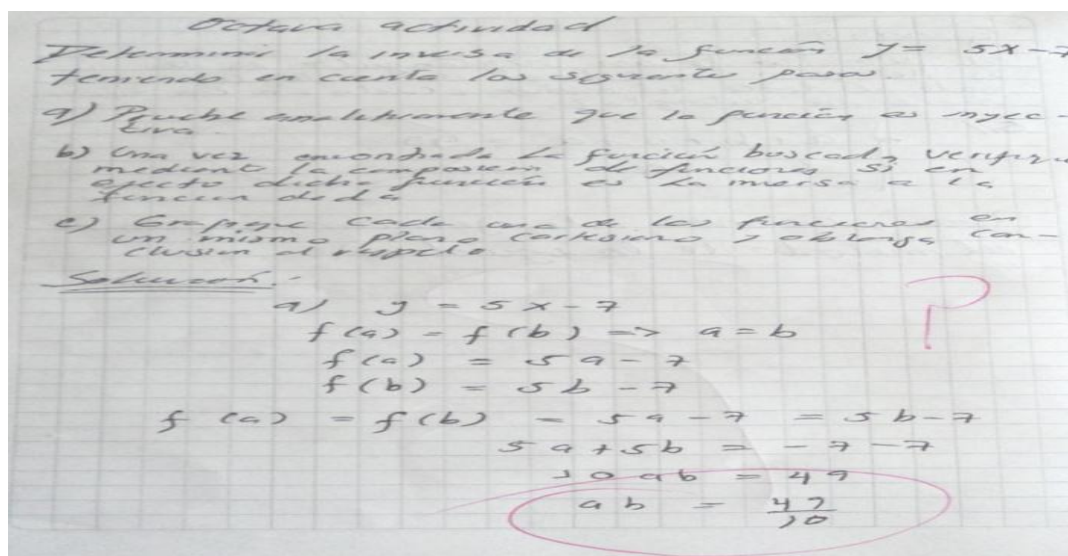 Octava actividad
Determinar la inversa de la función y = 5x - 7
teniendo en cuenta los siguientes pasos.
a) Pruebe analíticamente que la función es inyec-
tiva
b) Una vez encontrada la función buscada verifique
mediante la composición de funciones si en
efecto dicha función es la inversa a la
función dada
c) Grafique cada una de las funciones en
un mismo plano cartesiano y obtenga con-
clusión al respecto
Solución:
a) y = 5x - 7
f(a) = f(b) => a = b
f(a) = 5a - 7
f(b) = 5b - 7
f(a) = f(b) = 5a - 7 = 5b - 7
5a + 5b = -7 - 7
10ab = 49
ab = 49/10
?